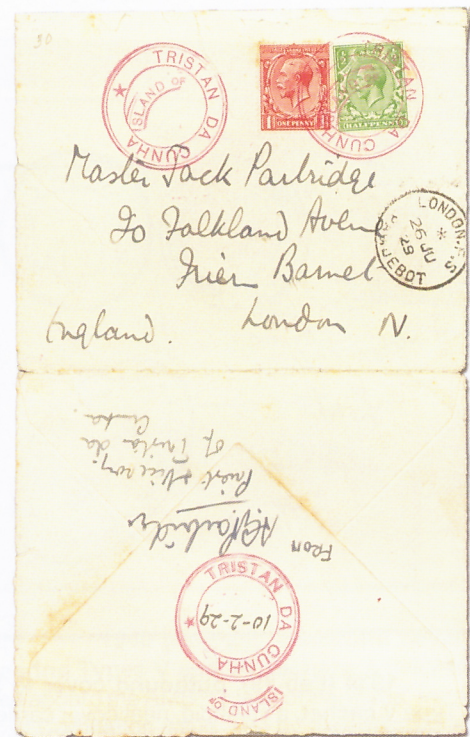 30
TRISTAN DA CUNHA
ISLAND OF
ONE PENNY
HALFPENNY
TRISTAN DA CUNHA
Master Jack Partridge
Falkland Aven
Frien Barnet
London N.
England.
LONDON. F.S
26 JU
29
PAQUEBOT
FROM
Partridge
Priest
of Tristan da
Cunha.
TRISTAN DA CUNHA
10-2-29
ISLAND OF